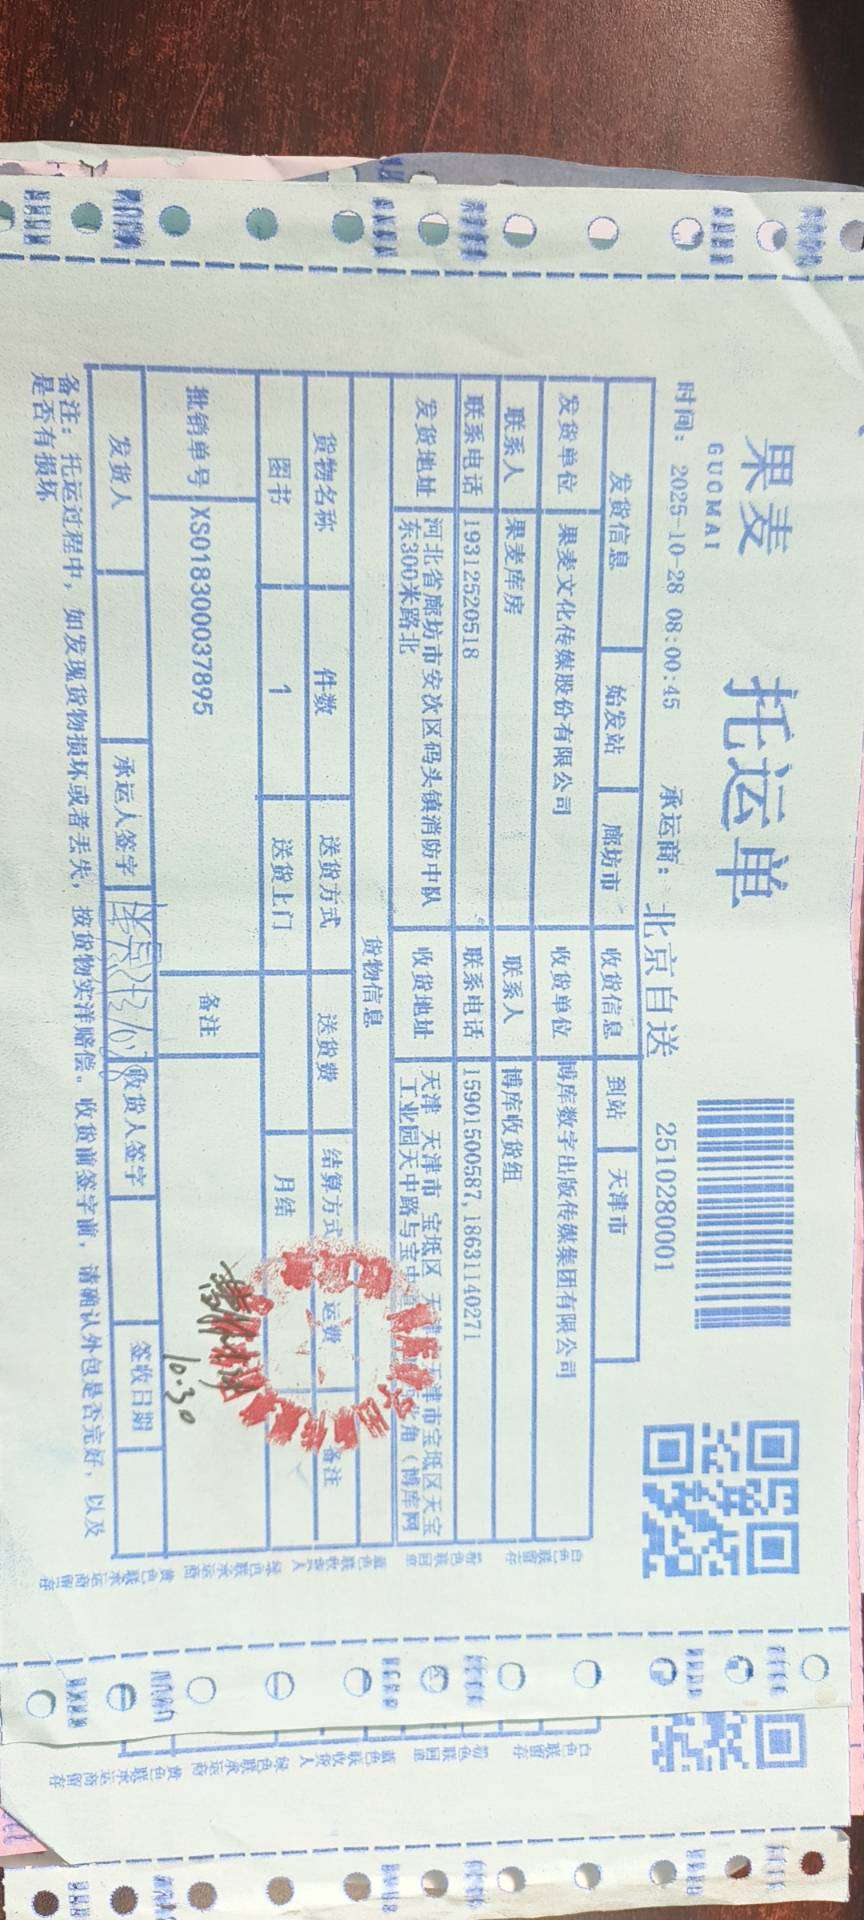 果麦
GUOMAI
托运单
时间: 2025-10-28 08:00:45 承运商: 北京自送 2510280001
发货信息 始发站 廊坊市 收货信息 到站 天津市
发货单位 果麦文化传媒股份有限公司 收货单位 博库数字出版传媒集团有限公司
联系人 果麦库房 联系人 博库收货组
联系电话 19312520518 联系电话 15901500587,18631140271
发货地址 河北省廊坊市安次区码头镇消防中队
东300米路北
收货地址 天津 天津市 宝坻区 天津 天津市宝坻区天宝
工业园天中路与宝中 北角(博库网
货物信息
货物名称 件数 送货方式 送货费 结算方式 运费 备注
图书 1 送货上门 月结
批销单号 XS018300037895 备注
10.30
发货人 承运人签字 收货人签字 签收日期
备注: 托运过程中, 如发现货物损坏或者丢失, 按货物实洋赔偿。收货前签字前, 请确认外包是否完好, 以及
是否有损坏
白色联留存 粉色联回单 蓝色联收货人 绿色联承运商 黄色联承运商留存
白色联留存 粉色联回单 蓝色联收货人 绿色联承运商 黄色联承运商留存